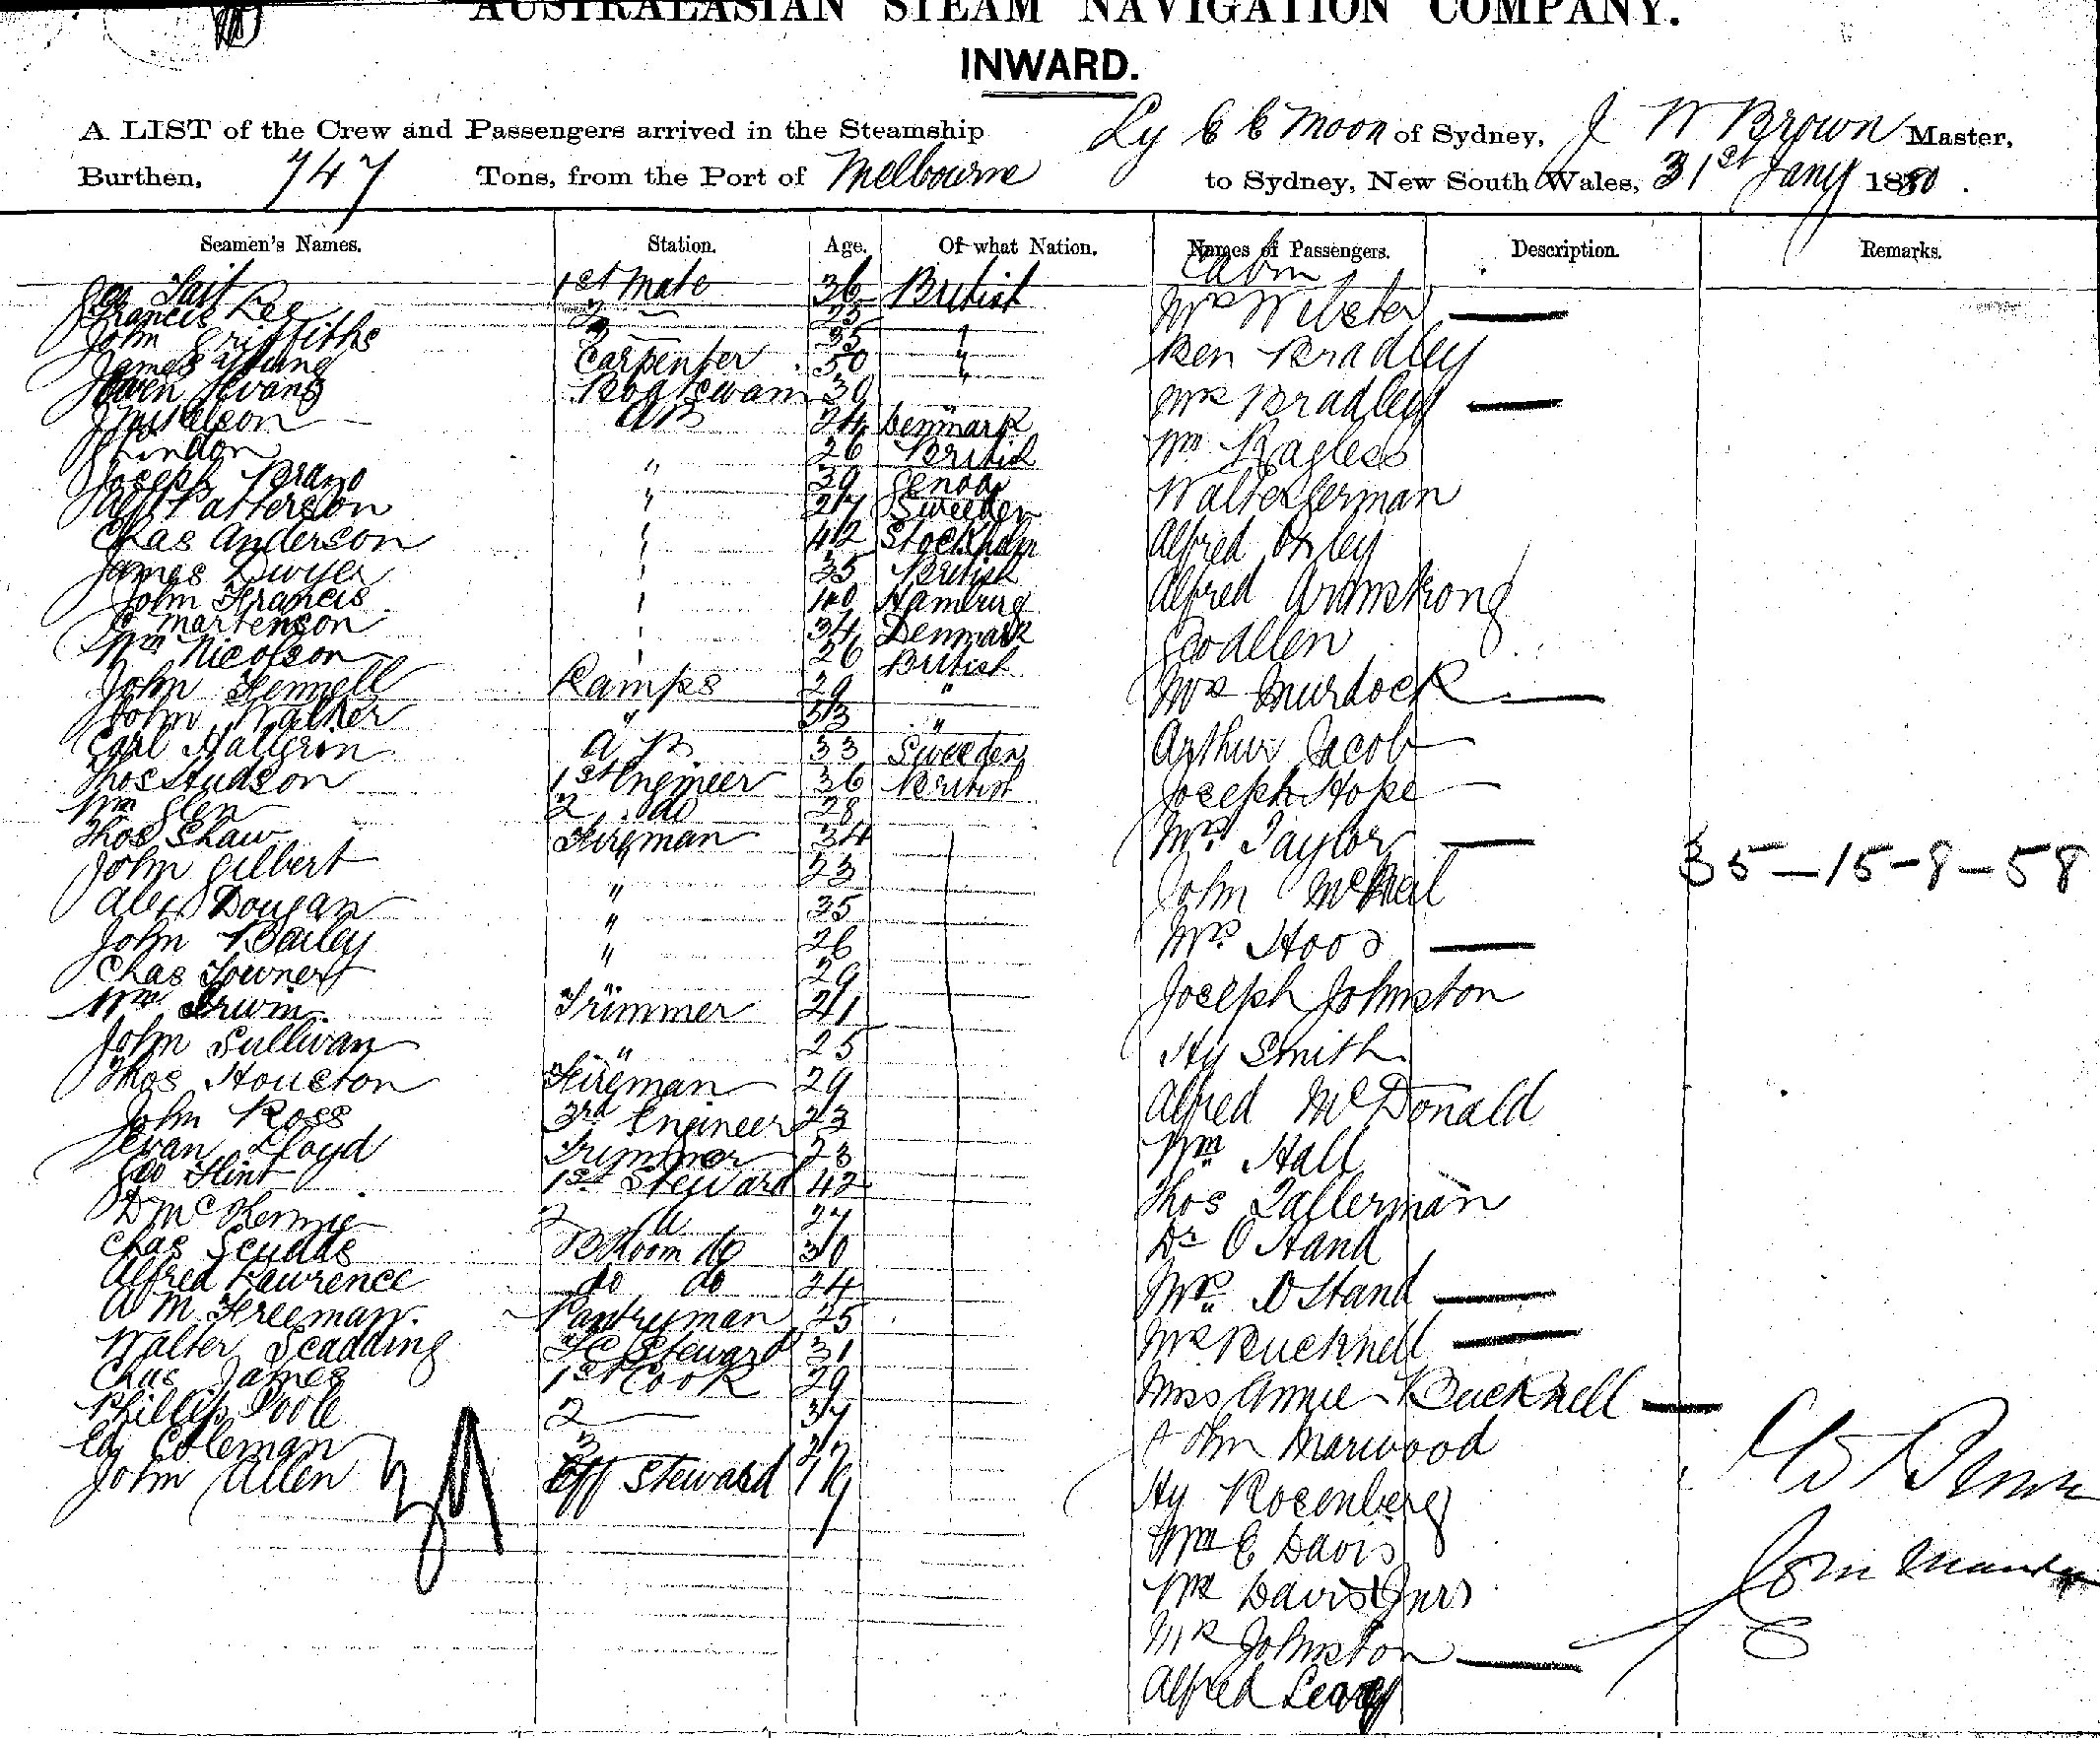 AUSTRALASIAN STEAM NAVIGATION COMPANY.
INWARD.
A LIST of the Crew and Passengers arrived in the Steamship Ly E E Moon of Sydney, J W Brown Master,
Burthen, 747 Tons, from the Port of Melbourne to Sydney, New South Wales, 31st Jany 1880.
Seamen's Names. Station. Age. Of what Nation. Names of Passengers. Description. Remarks.
Cabin
Geo Tait 1st Mate 36 British Mrs Webster —
Francis Lee 2 — 25 "
John Griffiths 3 — 35 " Ben Bradley
James Young Carpenter 50 "
Owen Evans Boatswain 30 " Mrs Bradley —
J Nielson AB 24 Denmark
Lindon " 26 British Wm Bagless
Joseph Brano " 39 Genoa
Patterson " 27 Sweeden Walter Jerman
Chas Anderson " 42 Stockholm Alfred Oxley
James Dwyer " 35 British
John Francis " 40 Hamburg Alfred Armstrong
C Martenson " 34 Denmark Geo Allen
Wm Nicolson " 26 British
John Fennell Lamps 29 " Mrs Murdock —
John Walker " 53 "
Carl Hallgrin AB 33 Sweeden Arthur Jacob
Thos Hudson 1st Engineer 36 British Joseph Hope
Wm Glen 2 do 28
Thos Shaw Fireman 34 Mrs Taylor —
John Gilbert " 23 John McNeil 35–15–8–58
Alex Dougan " 35
John Bailey " 26 Mrs Hood —
Chas Towner " 29
Wm Irwin Trimmer 21 Joseph Johnston
John Sullivan " 25 Hy Smith
Thos Houston Fireman 29 Alfred McDonald
John Ross 3rd Engineer 23
Evan Lloyd Trimmer 23 Wm Hall
Geo Flint 1st Steward 42 Thos Tallerman
D McKennie 2 d 27 Dr O Hand
Chas Scudds B Room do 30
Alfred Lawrence do do 24 Mrs O Hand —
A M Freeman Pantryman 25
Walter Scadding F C Steward 31 Mrs Bucknell —
Chas James 1st Cook 29 Miss Annie Bucknell —
Phillip Poole 2 — 37
Ed Coleman 3 John Marwood
John Allen Off Steward 19 Hy Rosenberg
Wm C Davis
Davis Junr
Mrs Johnston —
Alfred Leary